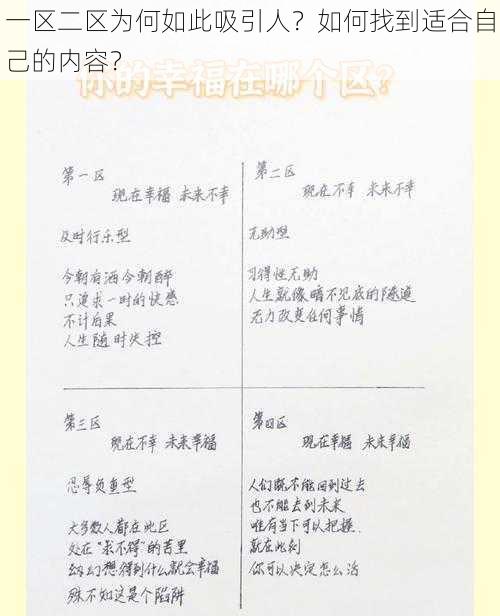 一区二区为何如此吸引人？如何找到适合自
己的内容？
你的幸福在哪个区？
第一区
现在幸福 未来不幸
及时行乐型
今朝有酒今朝醉
只追求一时的快感
不计后果
人生随时失控
第二区
现在不幸 未来不幸
无助型
习得性无助
人生就像暗不见底的隧道
无力改变任何事情
第三区
现在不幸 未来幸福
忍辱负重型
大多数人都在此区
处在“求不得”的苦里
幻想得到什么就会幸福
殊不知这是个陷阱
第四区
现在幸福 未来幸福
人们既不能回到过去
也不能去到未来
唯有当下可以把握
就在此刻
你可以决定怎么活